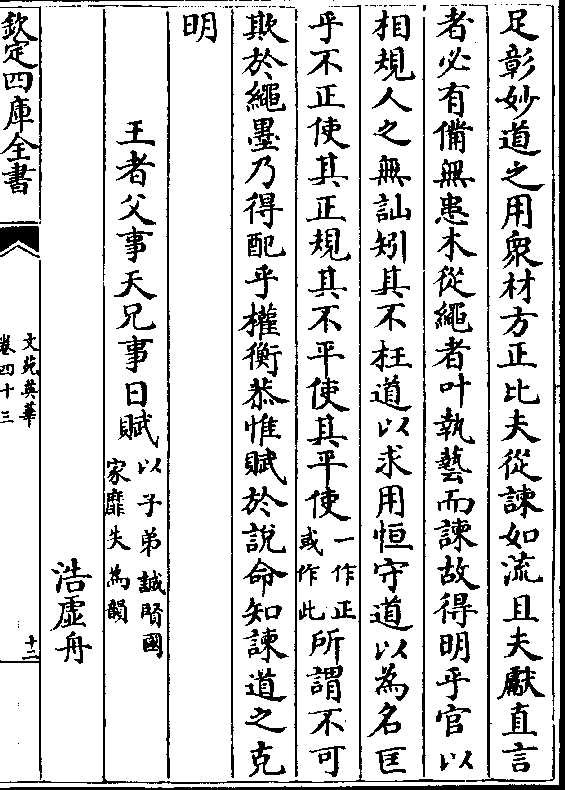 足彰妙道之用衆材方正比夫從諫如流且夫獻直言
者必有備無患木從繩者叶執藝而諫故得明乎官以
相規人之無訕矧其不枉道以求用恒守道以為名匡
乎不正使其正規其不平使其平使一作正或作此所謂不可
欺於繩墨乃得配乎權衡恭惟賦於說命知諫道之克
明
王者父事天兄事日賦以子弟誠賢國家靡失為韻
浩虛舟
欽定四庫全書
文苑英華
卷四十三
十二